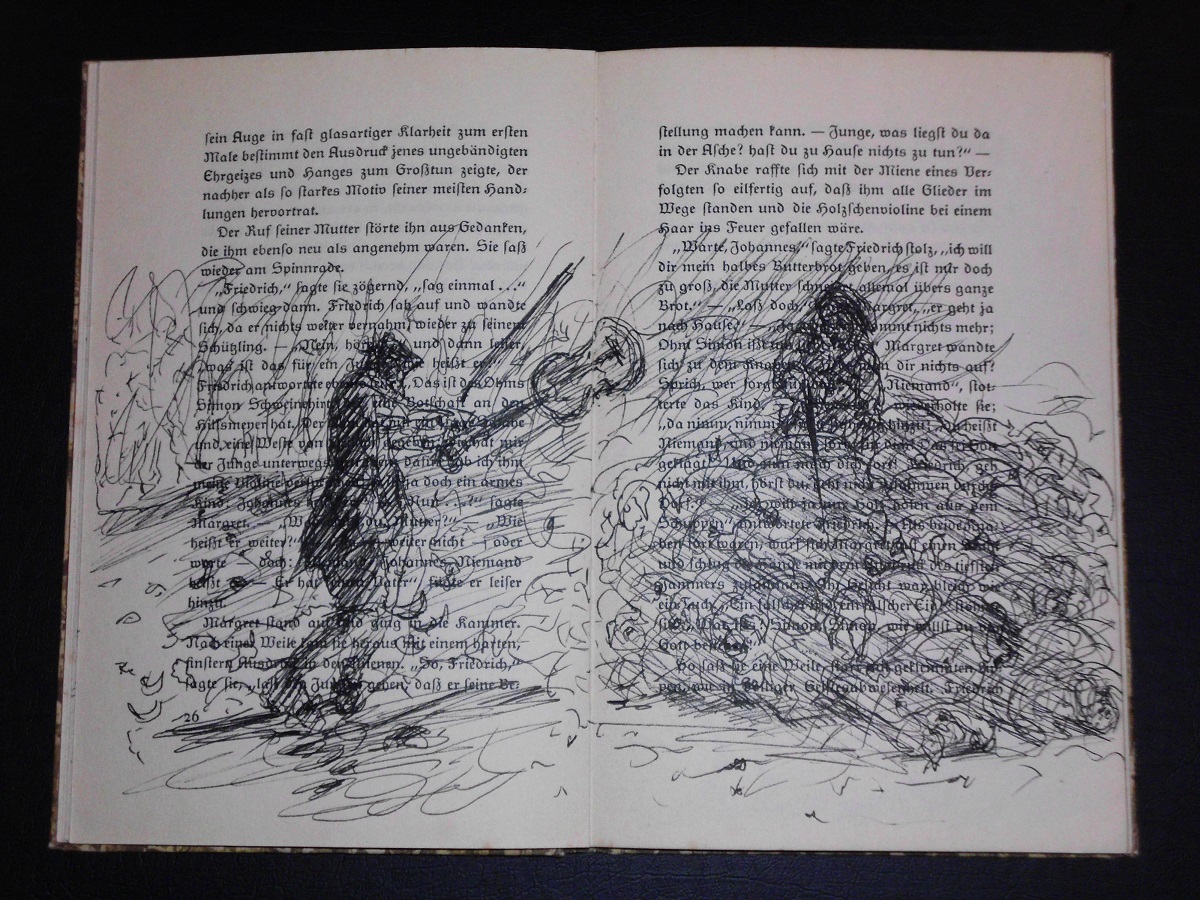 sein Auge in fast glasartiger Klarheit zum ersten
Male bestimmt den Ausdruck jenes ungebändigten
Ehrgeizes und Hanges zum Großtun zeigte, der
nachher als so starkes Motiv seiner meisten Hand-
lungen hervortrat.
Der Ruf seiner Mutter störte ihn aus Gedanken,
die ihm ebenso neu als angenehm waren. Sie saß
wieder am Spinnrade.
„Friedrich,“ sagte sie zögernd, „sag einmal ...“
und schwieg dann. Friedrich sah auf und wandte
sich, da er nichts weiter vernahm, wieder zu seinem
Schützling. — „Nein, und dann leiser,
„was ist das für ein heißt er
Friedrich antwortete „Das ist des Ohms
Simon Schweinehirt, Botschaft an den
Hülsmeyer hat. Der
und eine Weste von gegeben, hat mir
der Junge unterwegs dafür hab ich ihm
meine Violine versprochen; ja doch ein armes
Kind; Johannes Nun ...?“ sagte
Margret. — du, Mutter?“ „Wie
heißt er weiter?“ weiter nicht oder
warte doch: Johannes Niemand
heißt er. — Er hat Vater“, fügte er leiser
hinzu.
Margret stand auf und ging in die Kammer.
Nach einer Weile kam sie heraus mit einem harten,
finstern Ausdruck in den Mienen. „So, Friedrich,“
sagte sie, „laß den Jungen gehen, daß er seine Be-
26
stellung machen kann. — Junge, was liegst du da
in der Asche? hast du zu Hause nichts zu tun?“ —
Der Knabe raffte sich mit der Miene eines Ver-
folgten so eilfertig auf, daß ihm alle Glieder im
Wege standen und die Holzschenvioline bei einem
Haar ins Feuer gefallen wäre.
„Warte, Johannes,“ sagte Friedrich stolz, „ich will
dir mein halbes Butterbrot geben, es ist mir doch
zu groß, die Mutter schneidet allemal übers ganze
Brot.“ — „Laß doch,“ Margret, „er geht ja
nach Hause.“ — kommt nichts mehr;
Ohm Simon ißt Margret wandte
sich zu dem Knaben dir nichts auf?
Sprich, wer sorgt Niemand“, stot-
terte das Kind. wiederholte sie;
„da nimm, nimm!“ hinzu; „du heißt
Niemand und niemand
geklagt! Und nun mach dich fort! Friedrich, geh
nicht mit ihm, hörst du, geht nicht zusammen durchs
Dorf.“ „Ich will ja nur Holz holen aus dem
Schuppen“ antwortete Friedrich. — Als beide Kna-
ben fort waren, warf sich Margret auf einen Stuhl
und schlug die Hände mit dem Ausdruck des tiefsten
Jammers zusammen. Ihr Gesicht war bleich wie
ein Tuch. „Ein falscher Eid, ein falscher Eid!“ stöhnte
sie. „Was ist's? Simon, Simon, wie willst du vor
Gott bestehen!“
So saß sie eine Weile, starr mit geklemmten Lip-
pen, wie in völliger Geistesabwesenheit. Friedrich